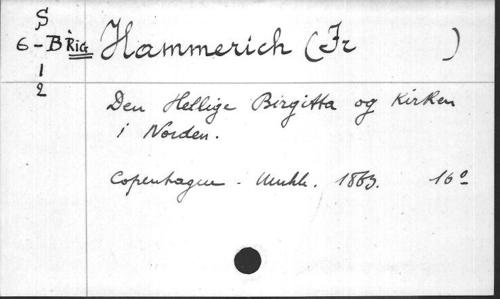 S
6-Brig Hammerich (Fr )
1
2
Den Hellige Birgitta og Kirken
i Norden.
Copenhagen. 1863. 16º